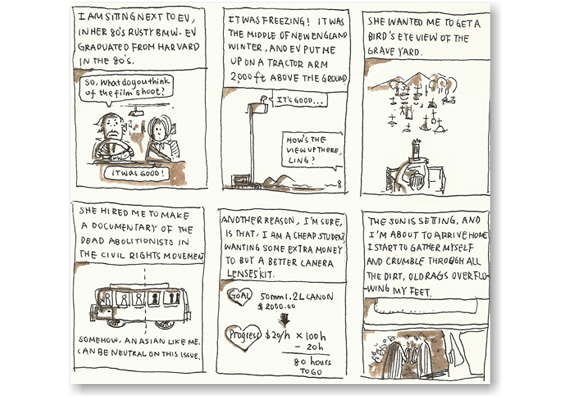 I AM SITING NEXT TO EV,
IN HER 80'S RUSTY BMW. EV
GRADUATED FROM HARVARD
IN THE 80'S.
So, What do you think
of the film shoot?
IT WAS GOOD!
IT WAS FREEZING! IT WAS
THE MIDDLE OF NEW ENGLAND
WINTER, AND EV PUT ME
UP ON A TRACTOR ARM
2000 ft ABOVE THE GROUND
IT'S GOOD...
HOW'S THE
VIEW UP THERE,
LING?
SHE WANTED ME TO GET A
BIRD'S EYE VIEW OF THE
GRAVE YARD.
SHE HIRED ME TO MAKE
A DOCUMENTARY OF THE
DEAD ABOLITIONISTS IN
THE CIVIL RIGHTS MOVEMENT
SOMEHOW, AN ASIAN LIKE ME,
CAN BE NEUTRAL ON THIS ISSUE.
ANOTHER REASON, I'M SURE,
IS THAT, I AM A CHEAP STUDENT
WANTING SOME EXTRA MONEY
TO BUY A BETTER CANERA
LENSES KIT.
GOAL 50mm 1.2L CANON
$2000.00
Progress $20/h × 100h
- 20h
80 hours
TO GO
THE SUN IS SETTING, AND
I'M ABOUT TO ARRIVE HOME
I START TO GATHER MYSELF
AND CRUMBLE THROUGH ALL
THE DIRT, OLD RAGS OVERFLO-
WING MY FEET.